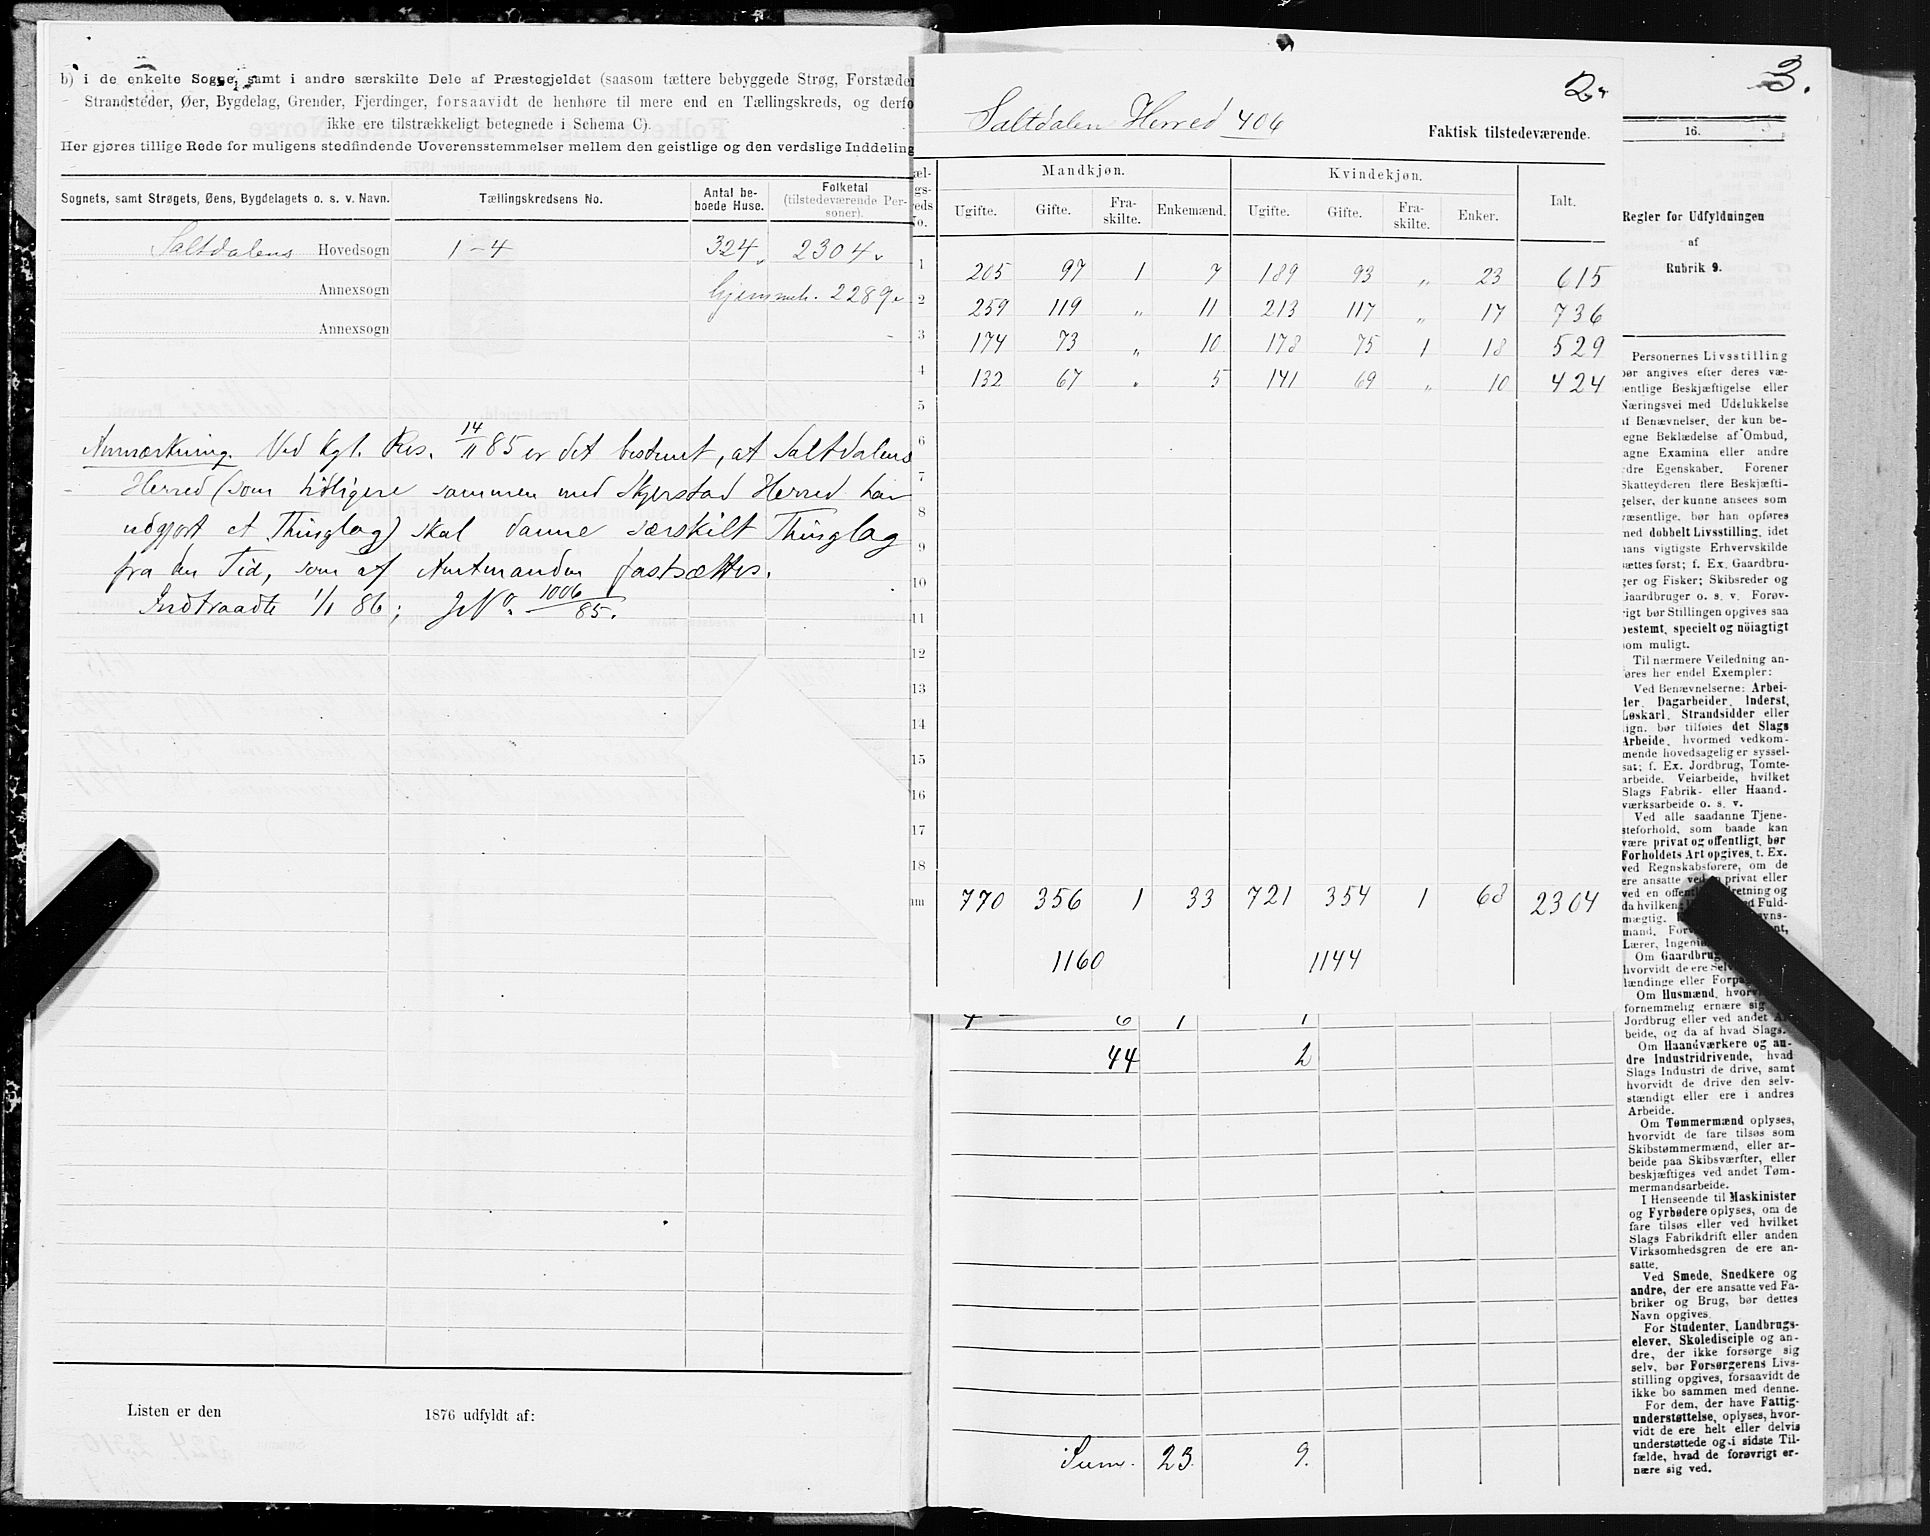 b) i de enkelte Sogne, samt i andre særskilte Dele af Præstegjeldet (saasom tættere bebyggede Strøg, Forstæder
Strandsteder, Øer, Bygdelag, Grender, Fjerdinger, forsaavidt de henhøre til mere end en Tællingskreds, og derfo
ikke ere tilstrækkeligt betegnede i Schema C).
Her gjøres tillige Rede for muligens stedfindende Uoverensstemmelser mellem den geistlige og den verdslige Inddeling
Sognets, samt Strøgets, Øens, Bygdelagets o. s. v. Navn. Tællingskredsens No. Antal beboede Huse. Folketal (tilstedeværende Personer).
Saltdalens Hovedsogn 1-4 324 2304
Annexsogn hjemmeh. 2289
Annexsogn
Anmærkning. Ved Kgl. Res. 14/11 85 er det bestemt, at Saltdalens
Herred (som tidligere sammen med Skjerstad Herred har
udgjort et Thinglag) skal danne særskilt Thinglag
fra den Tid, som af Amtmanden fastsættes.
Indtraadte 1/1 86; JNo. 1006/85.
Listen er den 1876 udfyldt af:
2. 3.
Saltdalen Herred 406
Faktisk tilstedeværende.
Mandkjøn. Kvindekjøn.
Ugifte. Gifte. Fraskilte. Enkemænd. Ugifte. Gifte. Fraskilte. Enker. Ialt.
1 205 97 1 7 189 93 „ 23 615
2 259 119 „ 11 213 117 „ 17 736
3 174 73 „ 10 178 75 1 18 529
4 132 67 „ 5 141 69 „ 10 424
5
6
7
8
9
10
11
12
13
14
15
16
17
18
770 356 1 33 721 354 1 68 2304
1160 1144
6 1 1
44 2
Sum. 23. 9.
16.
Regler for Udfyldningen
af
Rubrik 9.
Personernes Livsstilling
bør angives efter deres væ-
sentlige Beskjæftigelse eller
Næringsvei med Udelukkelse
af Benævnelser, der kun be-
egne Beklædelse af Ombud,
tagne Examina eller andre
dre Egenskaber. Forener
Skatteyderen flere Beskjæfti-
gelser, der kunne ansees som
væsentlige, bør han opføres
med dobbelt Livsstilling, idet
hans vigtigste Erhvervskilde
sættes først; f. Ex. Gaardbru-
ger og Fisker; Skibsreder og
Gaardbruger o. s. v. Forøv-
rigt bør Stillingen opgives saa
bestemt, specielt og nöiagtigt
som muligt.
Til nærmere Veiledning an-
føres her endel Exempler:
Ved Benævnelserne: Arbei-
der, Dagarbeider, Inderst,
Løskarl, Strandsidder eller
lign. bør tilføies det Slags
Arbeide, hvormed vedkom-
mende hovedsagelig er syssel-
sat; f. Ex. Jordbrug, Tomte-
arbeide, Veiarbeide, hvilket
Slags Fabrik- eller Haand-
værksarbeide o. s. v.
Ved alle saadanne Tjene-
steforhold, som baade kan
være privat og offentligt, bør
Forholdets Art opgives, t. Ex.
ved Regnskabsførere, om de
ere ansatte ved en privat eller
ved en
da hvilken;
mægtig.
mand,
Lærer,
Om Gaardbrug
hvorvidt de ere
lændinge eller
Om Husmænd,
fornemmelig ernære sig
Jordbrug eller ved andet Ar-
beide, og da af hvad Slags.
Om Haandværkere og an-
dre Industridrivende, hvad
Slags Industri de drive, samt
hvorvidt de drive den selv-
stændigt eller ere i andres
Arbeide.
Om Tømmermænd oplyses,
hvorvidt de fare tilsøs som
Skibstømmermænd, eller ar-
beide paa Skibsværfter, eller
beskjæftiges ved andet Tøm-
mermandsarbeide.
I Henseende til Maskinister
og Fyrbødere oplyses, om de
fare tilsøs eller ved hvilket
Slags Fabrikdrift eller anden
Virksomhedsgren de ere an-
satte.
Ved Smede, Snedkere og
andre, der ere ansatte ved Fa-
briker og Brug, bør dettes
Navn opgives.
For Studenter, Landbrugs-
elever, Skoledisciple og an-
dre, der ikke forsørge sig
selv, bør Forsørgerens Livs-
stilling opgives, forsaavidt de
ikke bo sammen med denne.
For dem, der have Fattig-
understøttelse, oplyses, hvor-
vidt de ere helt eller delvis
understøttede og i sidste Til-
fælde, hvad de forøvrigt er-
nære sig ved.